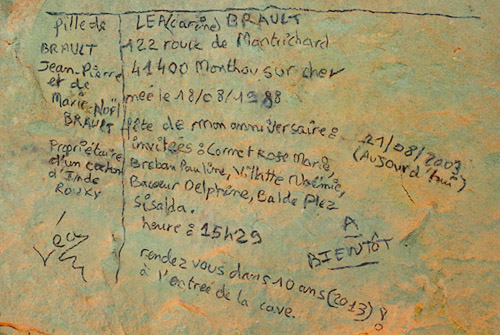 fille de
BRAULT
Jean-Pierre
et de
Marie-Noël
BRAULT
Propriétaire
d'un cochon
d'Inde
ROUKY
Lea
LEA (carine) BRAULT
122 route de Montrichard
41400 Monthou sur cher
née le 18/08/1988
fête de mon anniversaire :
21/08/2003
(Aujourd'hui)
invitées : Cornet Rose Marie,
Breban Pauline, Villatte Noémie,
Delphine, Balde
heure : 15h29
A
BIENTÔT
rendez vous dans 10 ans (2013) !
à l'entrée de la cave.